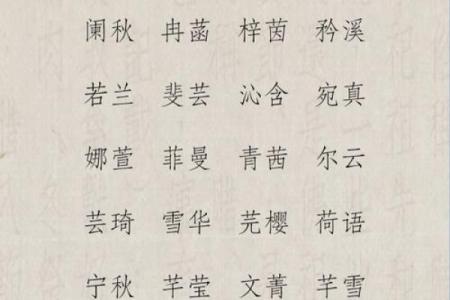 阑秋 冉菡 梓茵 矜溪
若兰 斐芸 沁含 宛真
娜萱 菲曼 青茜 尔云
芸琦 雪华 芫樱 荷语
宁秋 芊莹 文菁 芊雪